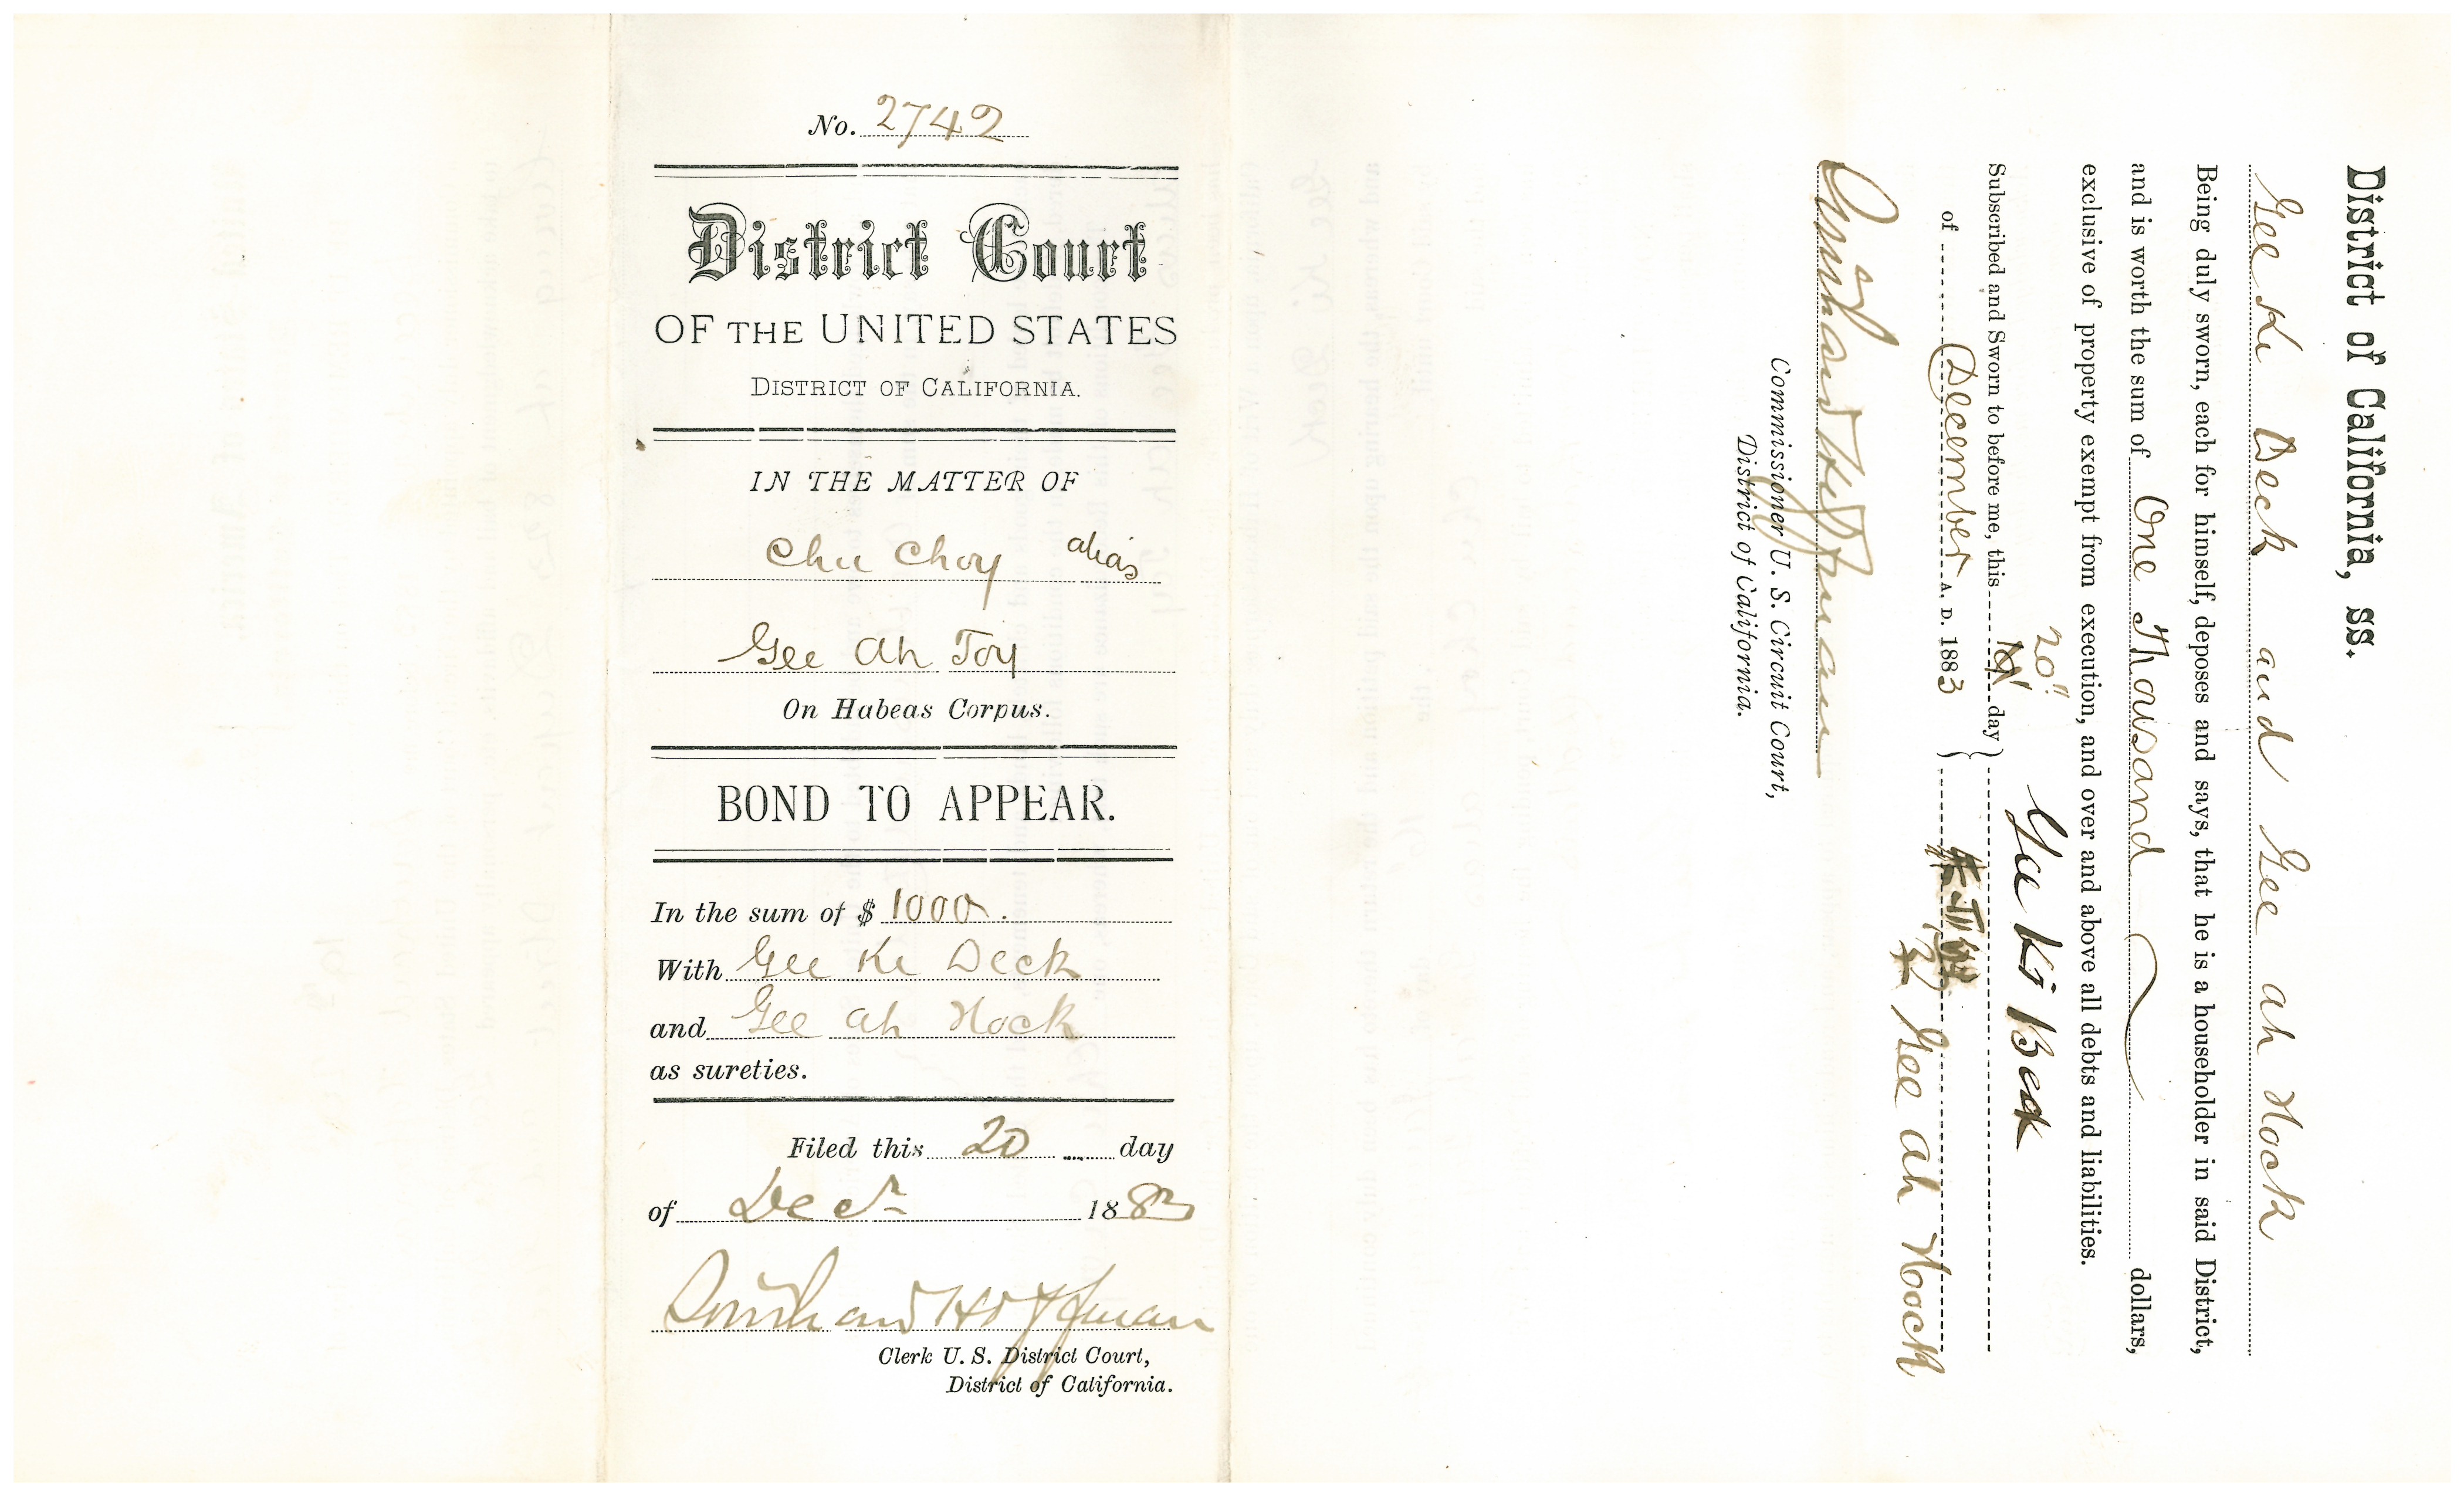 No. 2742
District Court
OF THE UNITED STATES
DISTRICT OF CALIFORNIA.
IN THE MATTER OF
Chu Choy alias
Gee Ah Toy
On Habeas Corpus.
BOND TO APPEAR.
In the sum of $ 1000.
With Gee Ki Deck
and Gee Ah Hock
as sureties.
Filed this 20 day
of Decr 1883
Southard Hoffman
Clerk U. S. District Court,
District of California.
District of California, ss.
Gee Ki Deck and Gee Ah Hock
Being duly sworn, each for himself, deposes and says, that he is a householder in said District,
and is worth the sum of One Thousand dollars,
exclusive of property exempt from execution, and over and above all debts and liabilities.
Subscribed and Sworn to before me, this 20" day
of December A. D. 1883
Gee Ki Beck
Gee Ah Hock
Southard Hoffman
Commissioner U. S. Circuit Court,
District of California.